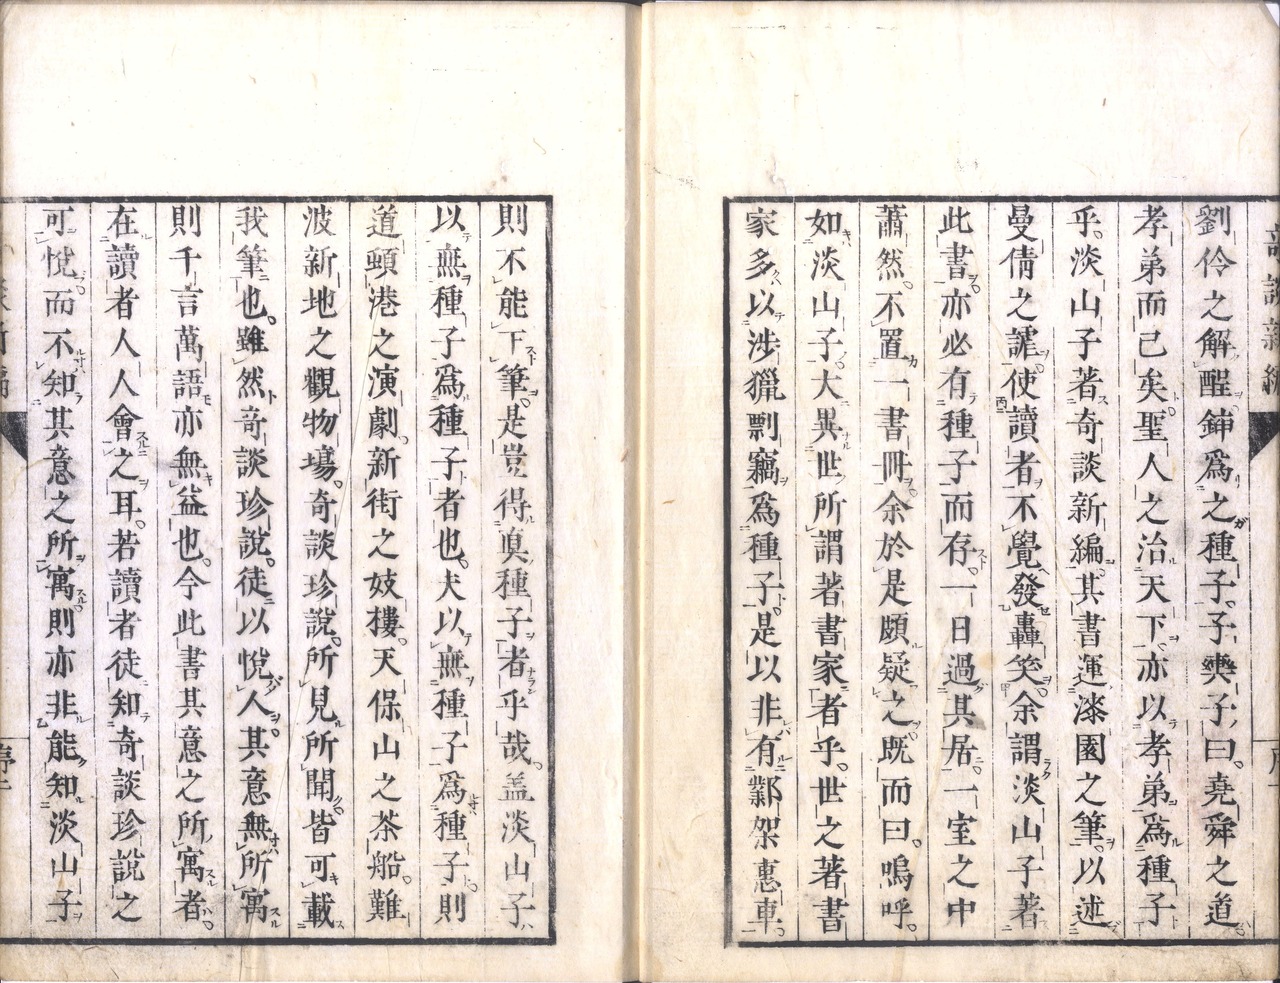 劉伶之解酲鍤爲之種子。子輿子曰。堯舜之道
孝弟而已矣聖人之治天下。亦以孝弟爲種子
乎。淡山子著奇談新編。其書運漆園之筆。以述
曼倩之謔。使讀者不覺發轟笑。余謂淡山子著
此書。亦必有種子而存。一日過其居。一室之中
蕭然。不置一書冊。余於是頗疑之。既而曰。嗚呼。
如淡山子。大異世所謂著書家者乎。世之著書
家多以涉獵剽竊爲種子。是以非有鄴架惠車。
則不能下筆。是豈得眞種子者乎哉。蓋淡山子
以無種子爲種子者也。夫以無種子爲種子。則
道頓港之演劇。新街之妓樓。天保山之茶船。難
波新地之觀物場。奇談珍說。所見所聞。皆可載
我筆也。雖然奇談珍說。徒以悅人。其意無所寓
則千言萬語亦無益也。今此書其意之所寓者。
在讀者人人會之耳。若讀者徒知奇談珍說之
可悅。而不知其意之所寓。則亦非能知淡山子